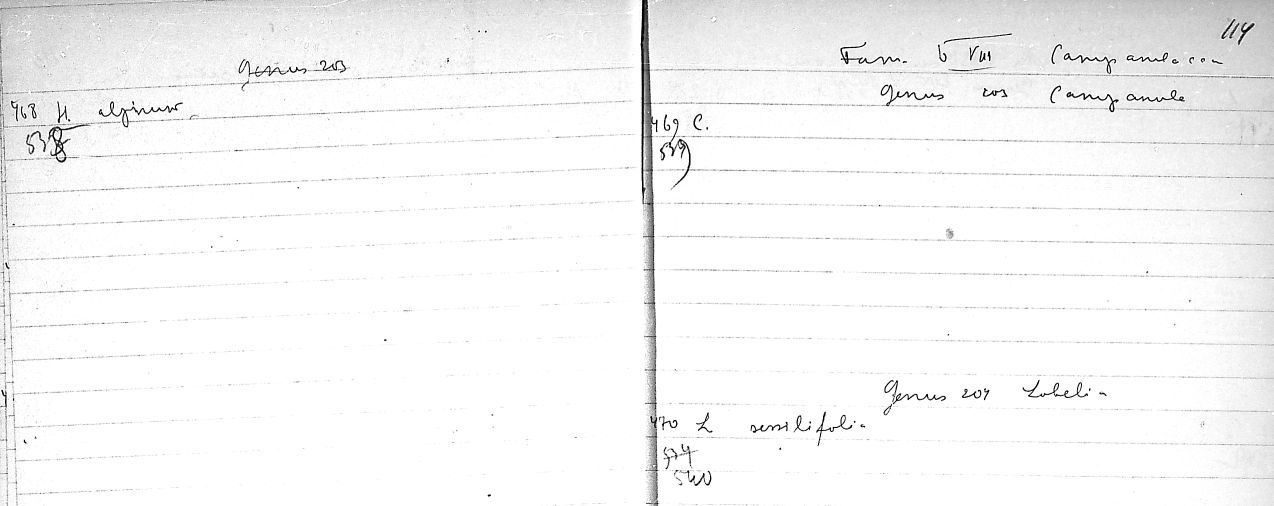 Genus 203
468 H. alpinum
538
114
Fam. VIII Campanulaceae
Genus 203 Campanula
469 C.
539
Genus 204 Lobelia
470 L sessilifolia
574
540